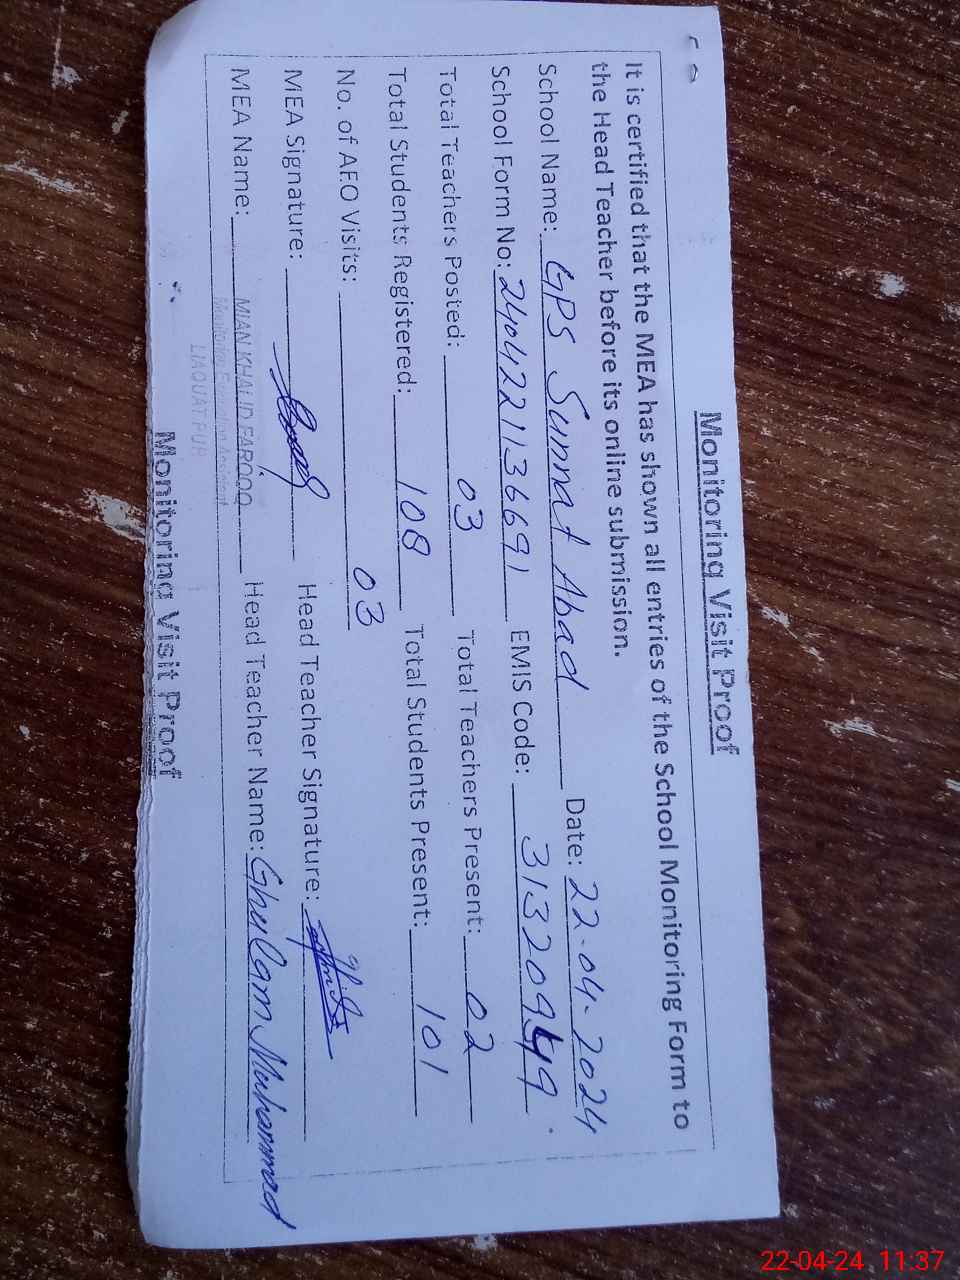 Monitoring Visit Proof
It is certified that the MEA has shown all entries of the School Monitoring Form to
the Head Teacher before its online submission.
School Name: GPS Sunnat Abad Date: 22-04-2024
School Form No: 2404221136691 EMIS Code: 31320949
Total Teachers Posted: 03 Total Teachers Present: 02
Total Students Registered: 108 Total Students Present: 101
No. of AEO Visits: 03
MEA Signature: Head Teacher Signature:
MEA Name: MIAN KHALID FAROOQ Head Teacher Name: Ghulam Muhammad
Monitoring Evaluation Assistant
LIAQUAT PUR
Monitoring Visit Proof
22-04-24 11:37